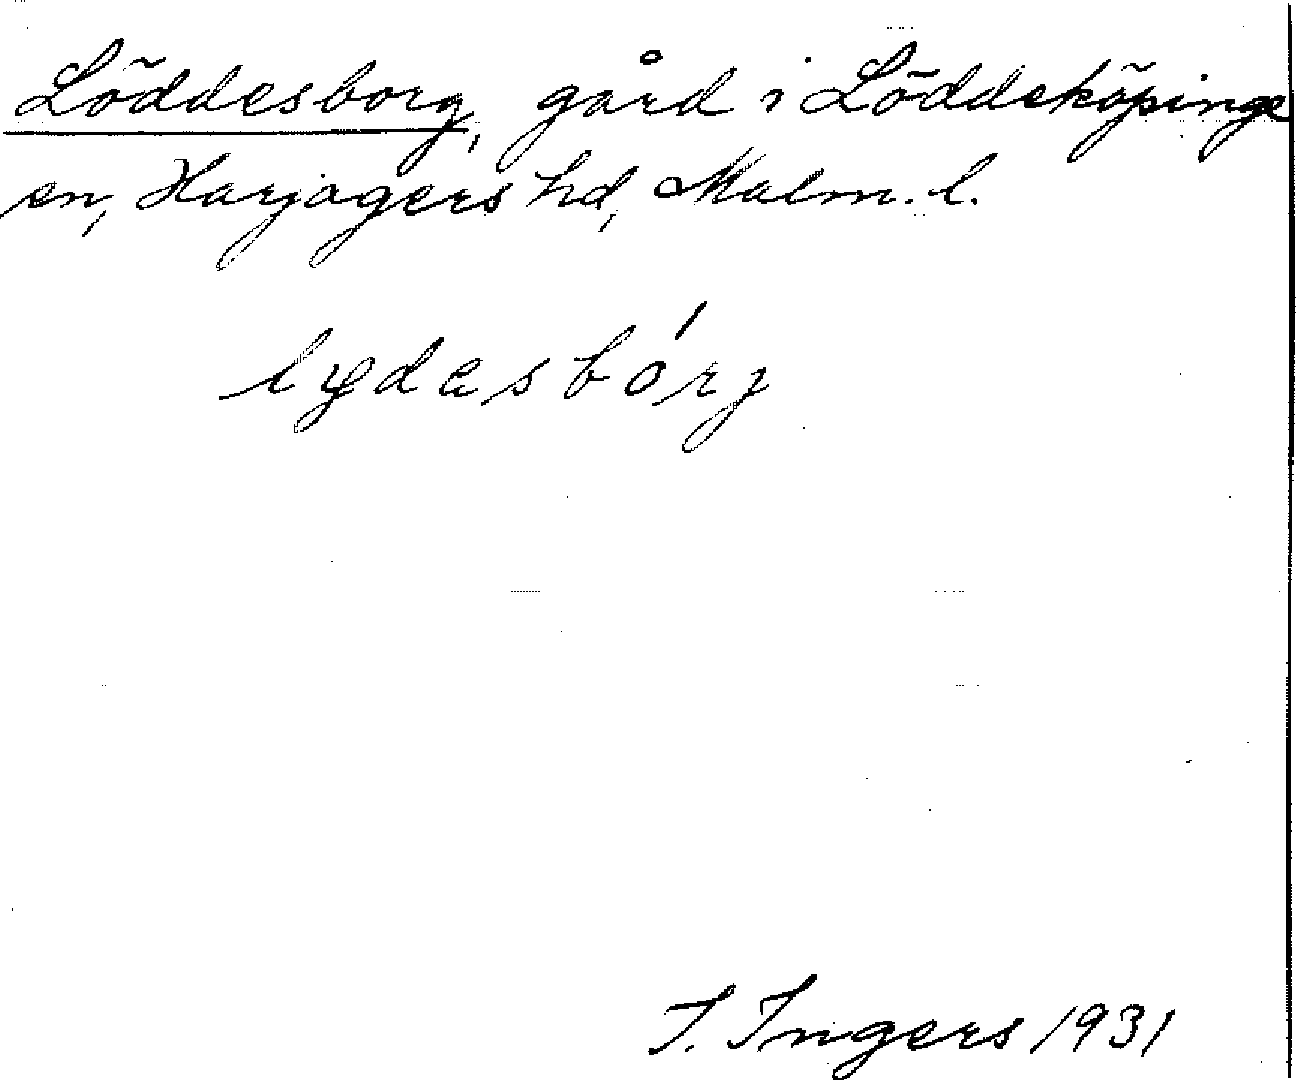 Löddesborg, gård i Löddeköpinge
sn, Harjagers hd, Malm. l.
lydəsbórj
I. Ingers 1931